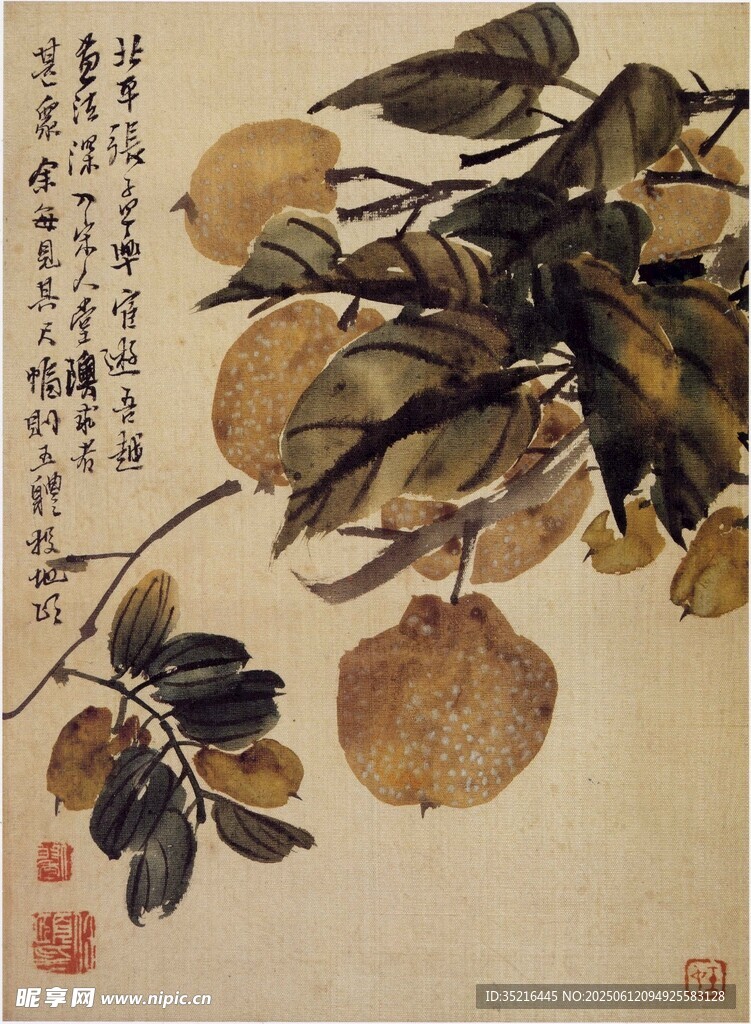 北平張孟皋宦遊吾越
畫法深入宋人堂隩求者
甚眾余每見其尺幅則五體投地頃
昵享网 www.nipic.cn
ID:35216445 NO:20250612094925583128